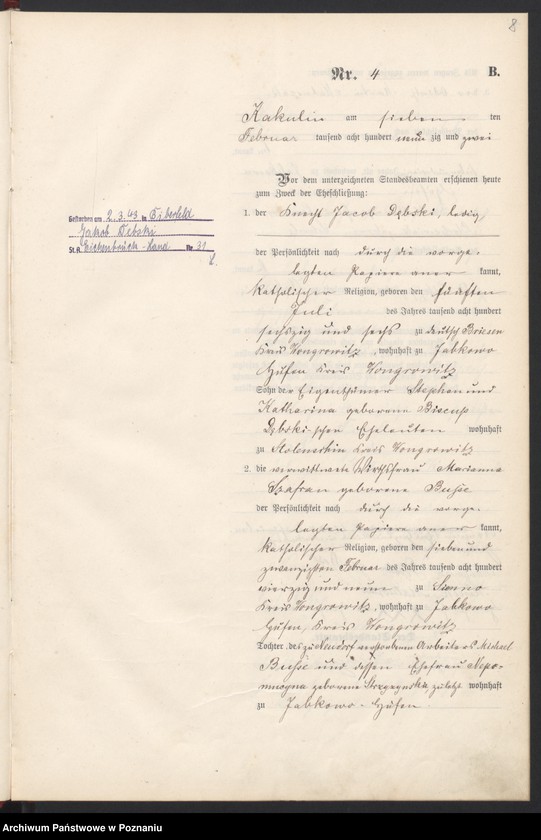 8
Nr. 4 B.
Kakulin am sieben ten
Februar tausend acht hundert neun zig und zwei
Vor dem unterzeichneten Standesbeamten erschienen heute
zum Zweck der Eheschließung:
1. der Knecht Jacob Dębski, ledig
Gestorben am 2.3.43 in
Jakob Debski
St. A. Eichenbrück-Land Nr. 31
der Persönlichkeit nach durch die vorge-
legten Papiere aner kannt,
katholischer Religion, geboren den fünften
Juli des Jahres tausend acht hundert
sechszig und sechs zu deutsch Briesen
Kreis Wongrowitz, wohnhaft zu Jabkowo
Hufen Kreis Wongrowitz
Sohn der Eigenthümer Stephan und
Katharina geborene Biscup
Dębski-schen Eheleuten wohnhaft
zu Kreis Wongrowitz
2. die verwittwete Wirthsfrau Marianna
Szafran geborene Busse
der Persönlichkeit nach durch die vorge-
legten Papiere aner kannt,
katholischer Religion, geboren den sieben und
zwanzigsten Februar des Jahres tausend acht hundert
vierzig und neun zu Sienno
Kreis Wongrowitz, wohnhaft zu Jabkowo
Hufen, Kreis Wongrowitz
Tochter des zu verstorbenen Arbeiters Michael
Busse und dessen Ehefrau Nepo-
mucyna geborene zuletzt wohnhaft
zu Jabkowo-Hufen.
Archiwum Państwowe w Poznaniu